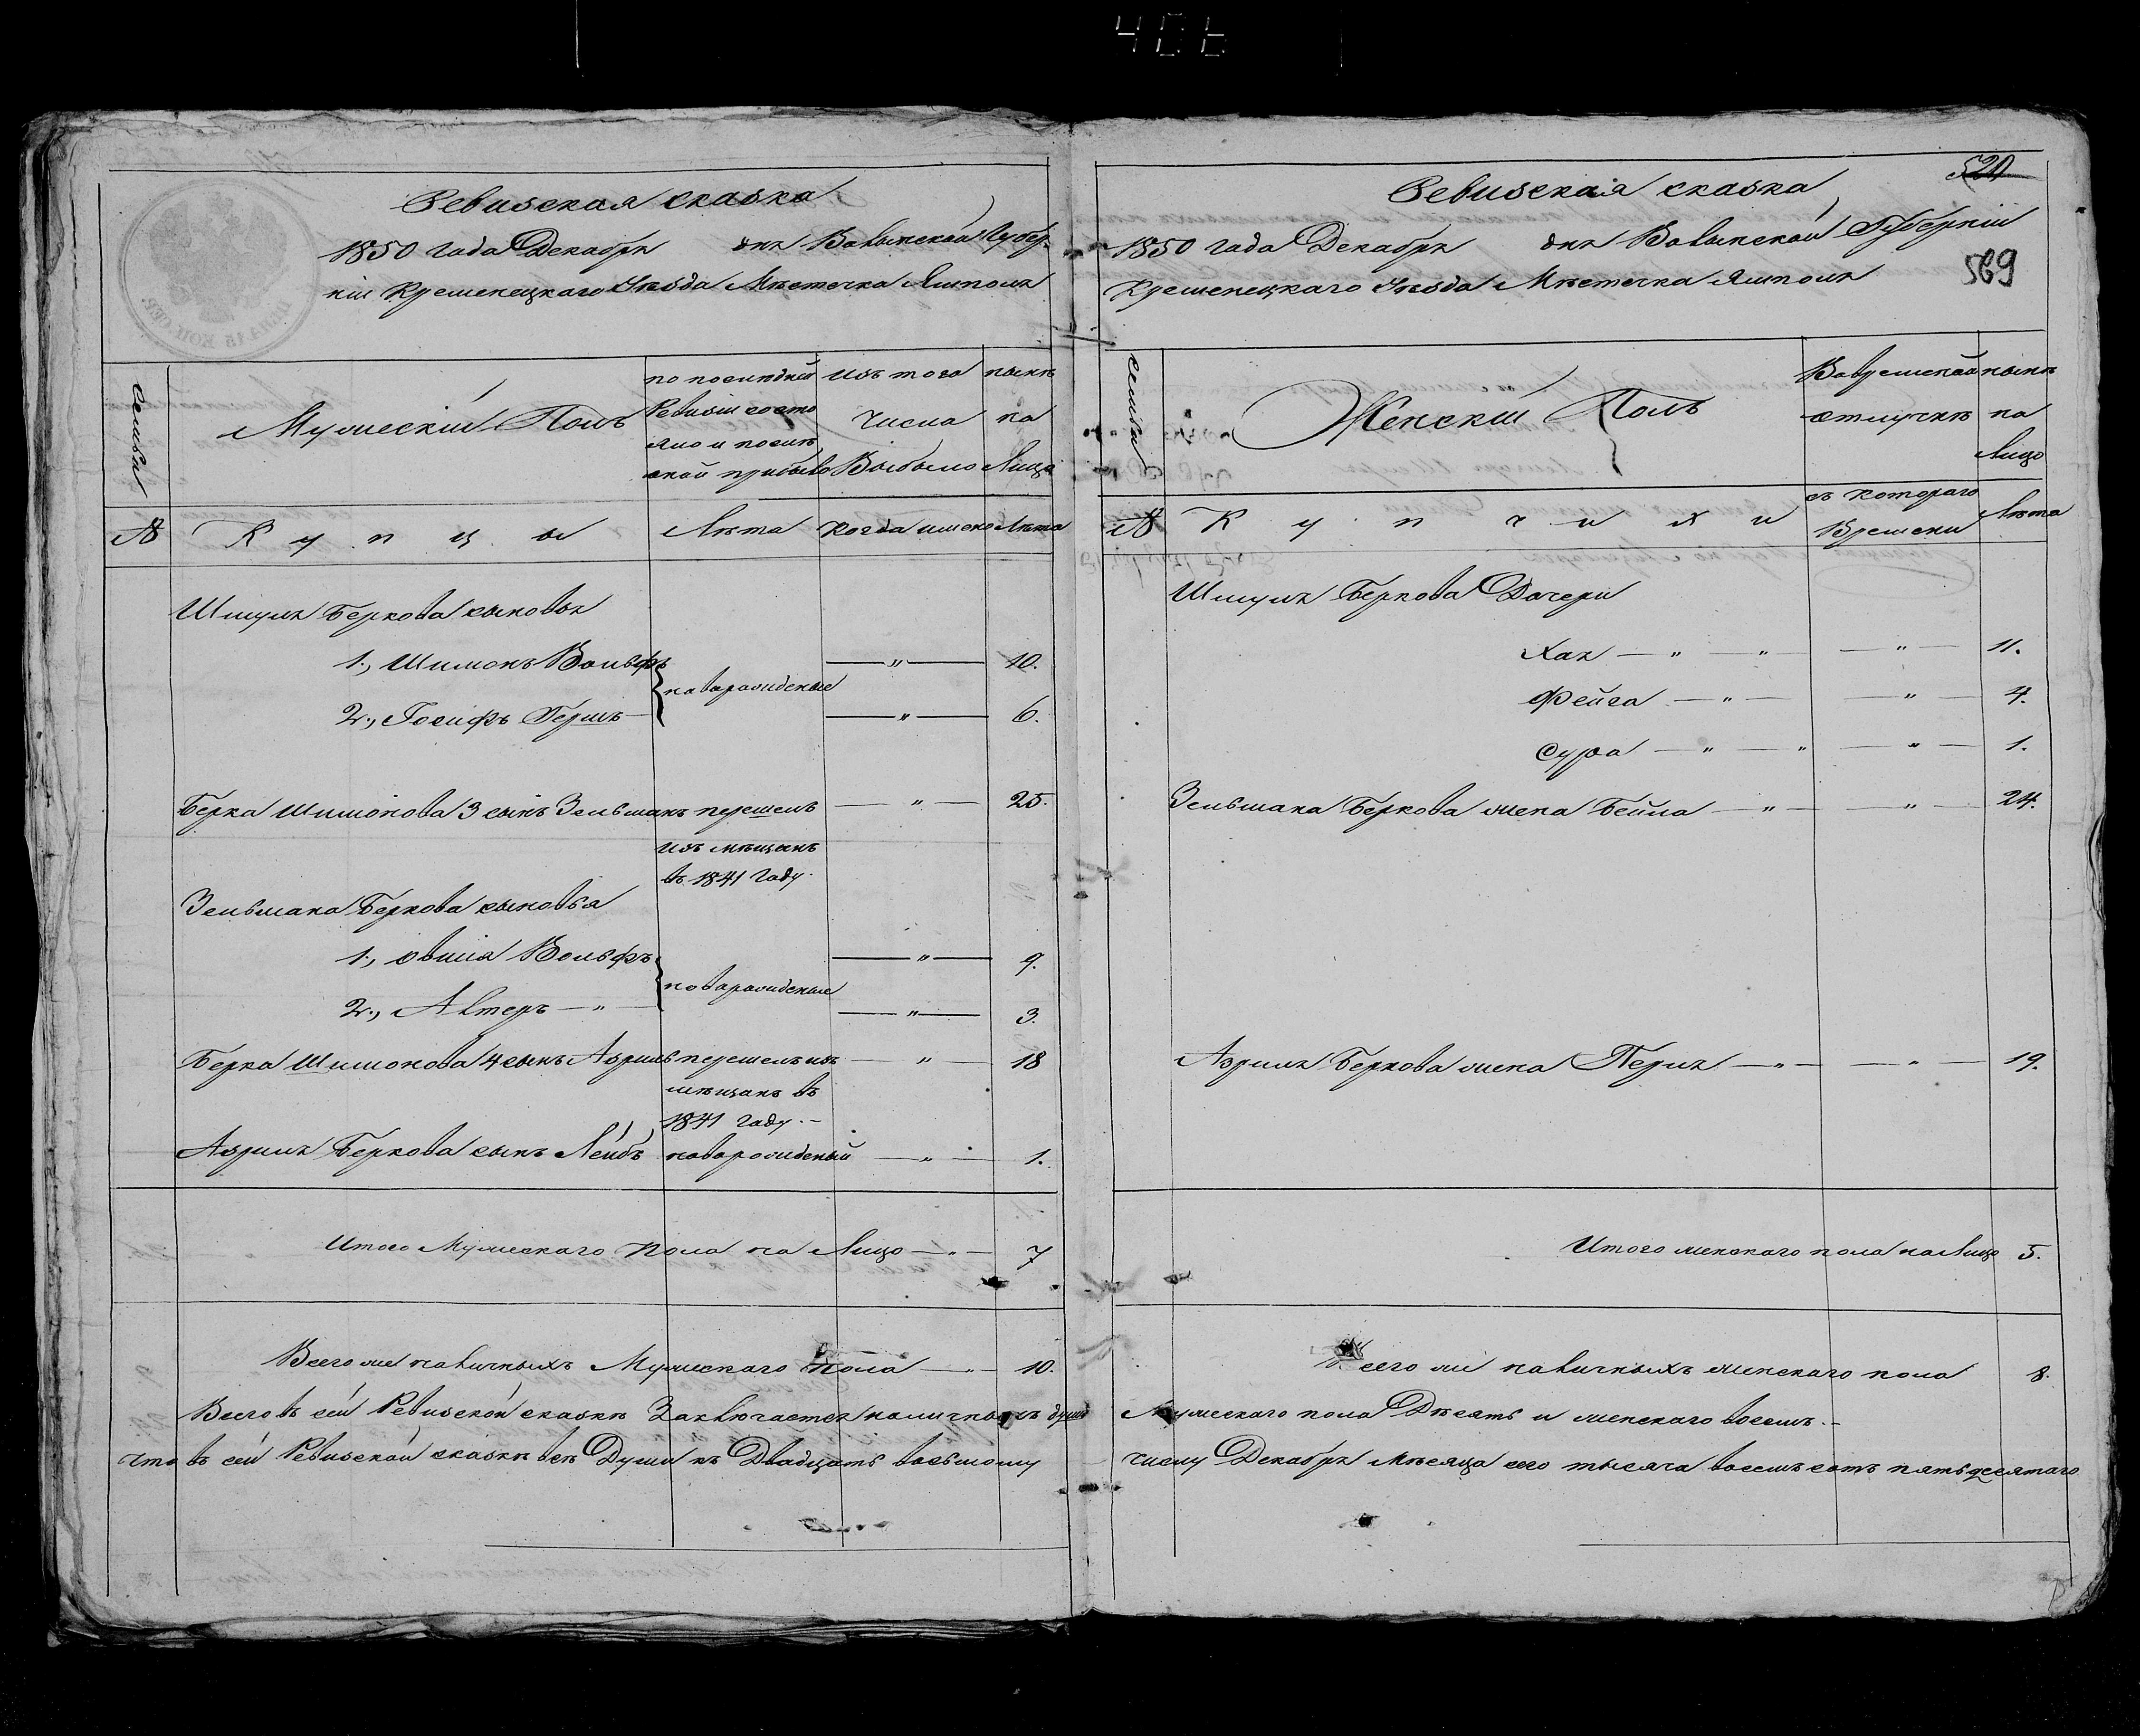 Ревизская сказка
1850 года Декабря дня Волынской Губер-
нии Кременецкаго Уѣзда Мѣстечка Ямполя
семьи
Мужескій Полъ
по послѣдней
Ревизіи состо
яло и послѣ
оной прибыло
изъ того
числа
Выбыло
нынѣ
на
Лицо
№
Купцы
Лѣта
когда имено
Лѣта
Шмуля Беркова сыновья
1., Шимонъ Вольфъ новорожденые — " — 10.
2., Іосифъ Гершъ — " — 6.
Берка Шимонова 3 сынъ Зельманъ перешелъ — " — 25.
изъ мѣщанъ
въ 1841 году.
Зельмана Беркова сыновья
1., Овшія Вольфъ новорожденые — " — 9.
2., Алтеръ — " — — " — 3.
Берка Шимонова 4 сынъ Азриль перешелъ изъ — " — 18
мѣщанъ въ
1841 году. —
Азриля Беркова сынъ Лейбъ новорожденый — " — 1.
Итого Мужескаго пола на Лицо — " — 7
Всего же наличныхъ Мужескаго пола — " — 10.
Всего въ сей Ревизской сказкѣ Заключается наличныхъ душъ
что въ сей Ревизской сказкѣ всѣ Души къ Двадцать восьмому
406
520
Ревизская сказка
1850 года Декабря дня Волынской Губерніи
Кременецкаго Уѣзда Мѣстечка Ямполя
569
семьи
Женскій Полъ
Во временной
отлучкѣ
нынѣ
на
Лицо
№
Купчихи
съ котораго
Времени
Лѣта
Шмуля Беркова Дочери
Хая — " — " — — " — 11.
Фейга — " — — " — 4.
Сура — " — " — " — 1.
Зельмана Беркова жена Бейла — " — " — 24.
Азриля Беркова жена Перля — " — — " — 19.
Итого женскаго пола на Лицо 5.
Всего же наличныхъ женскаго пола 8.
Мужескаго пола Дѣсять и женскаго восемь. —
числу Декабря Мѣсяца сего тысяча восемъ сотъ пятьдесятаго